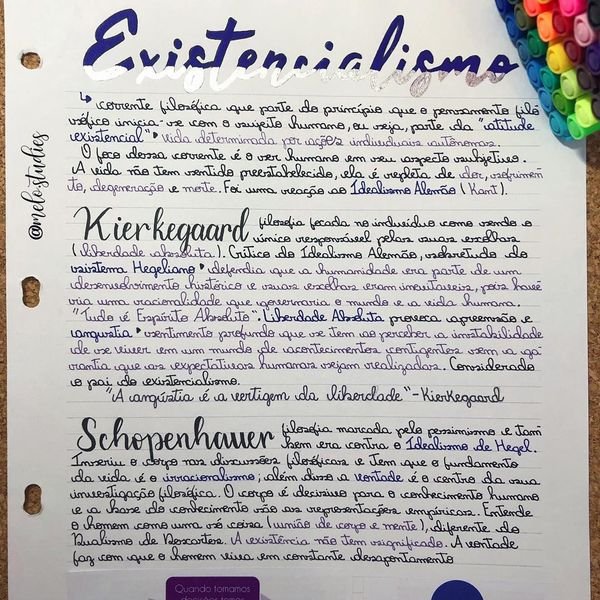 Existencialismo
@melo.studies
↳ corrente filosófica que parte do princípio que o pensamento filo
sófico inicia-se com o sujeito humano, ou seja, parte da "atitude
existencial" • vida determinada por ações individuais autônomas.
O foco dessa corrente é o ser humano em seu aspecto subjetivo.
A vida não tem sentido preestabelecido, ela é repleta de dor, sofrimen
to, degeneração e morte. Foi uma reação ao Idealismo Alemão (Kant).
Kierkegaard filosofia focada no indivíduo como sendo o
único responsável pelas suas escolhas
(liberdade absoluta). Crítico do Idealismo Alemão, sobretudo do
sistema Hegeliano • defendia que a humanidade era parte de um
desenvolvimento histórico e suas escolhas eram imutáveis, pois have
ria uma racionalidade que governaria o mundo e a vida humana.
"Tudo é Espírito Absoluto". Liberdade Absoluta provoca apreensão e
angústia • sentimento profundo que se tem ao perceber a instabilidade
de se viver em um mundo de acontecimentos contigentes sem a ga
rantia que as expectativas humanas sejam realizadas. Considerado
o pai do existencialismo.
"A angústia é a vertigem da liberdade" - Kierkegaard
Schopenhauer filosofia marcada pelo pessimismo e tam
bém era contra o Idealismo de Hegel.
Inseriu o corpo nas discussões filosóficas e tem que o fundamento
da vida é o irracionalismo; além disso a vontade é o centro da sua
investigação filosófica. O corpo é decisivo para o conhecimento humano
e a base do conhecimento são as representações empíricas. Entende
o homem como uma só coisa (união de corpo e mente), diferente do
Dualismo de Descartes. A existência não tem significado. A vontade
faz com que o homem viva em constante desapontamento
Quando tomamos
decisões temos